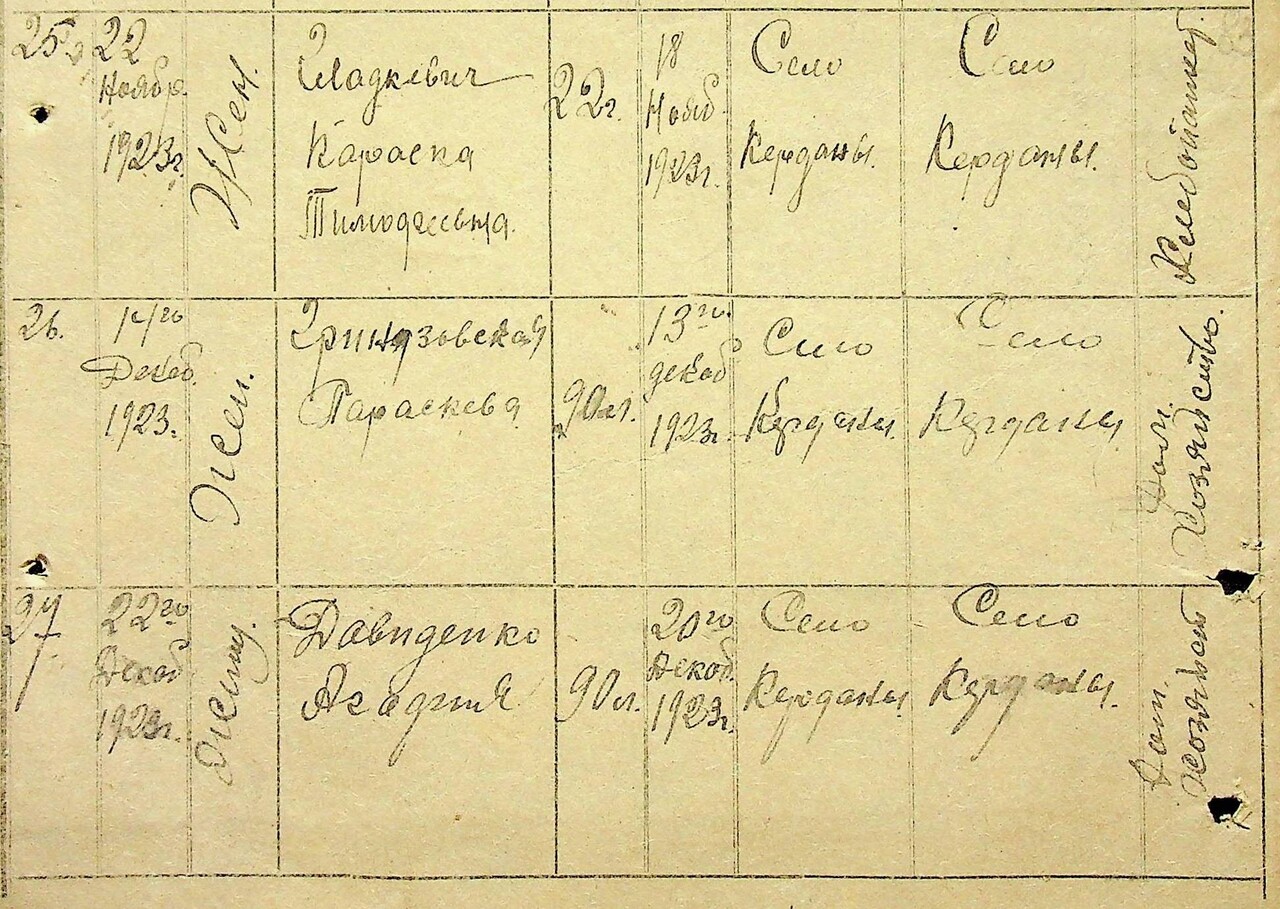 25.
22
Ноября
1923г.
Жен.
Гладкевич
Караска
Тимофеевна.
22г.
18
Нояб.
1923г.
Село
Керданы.
Село
Керданы.
Хлебопашец.
26.
14го
Декаб.
1923г.
Жен.
Параскева
90л.
13го
декаб
1923г.
Село
Керданы.
Село
Керданы
Дом.
хозяйство.
27
22го
Декаб
1923г.
Женщ.
Давиденко
90л.
20го
Декаб.
1923г.
Село
Керданы.
Село
Керданы.
Дом.